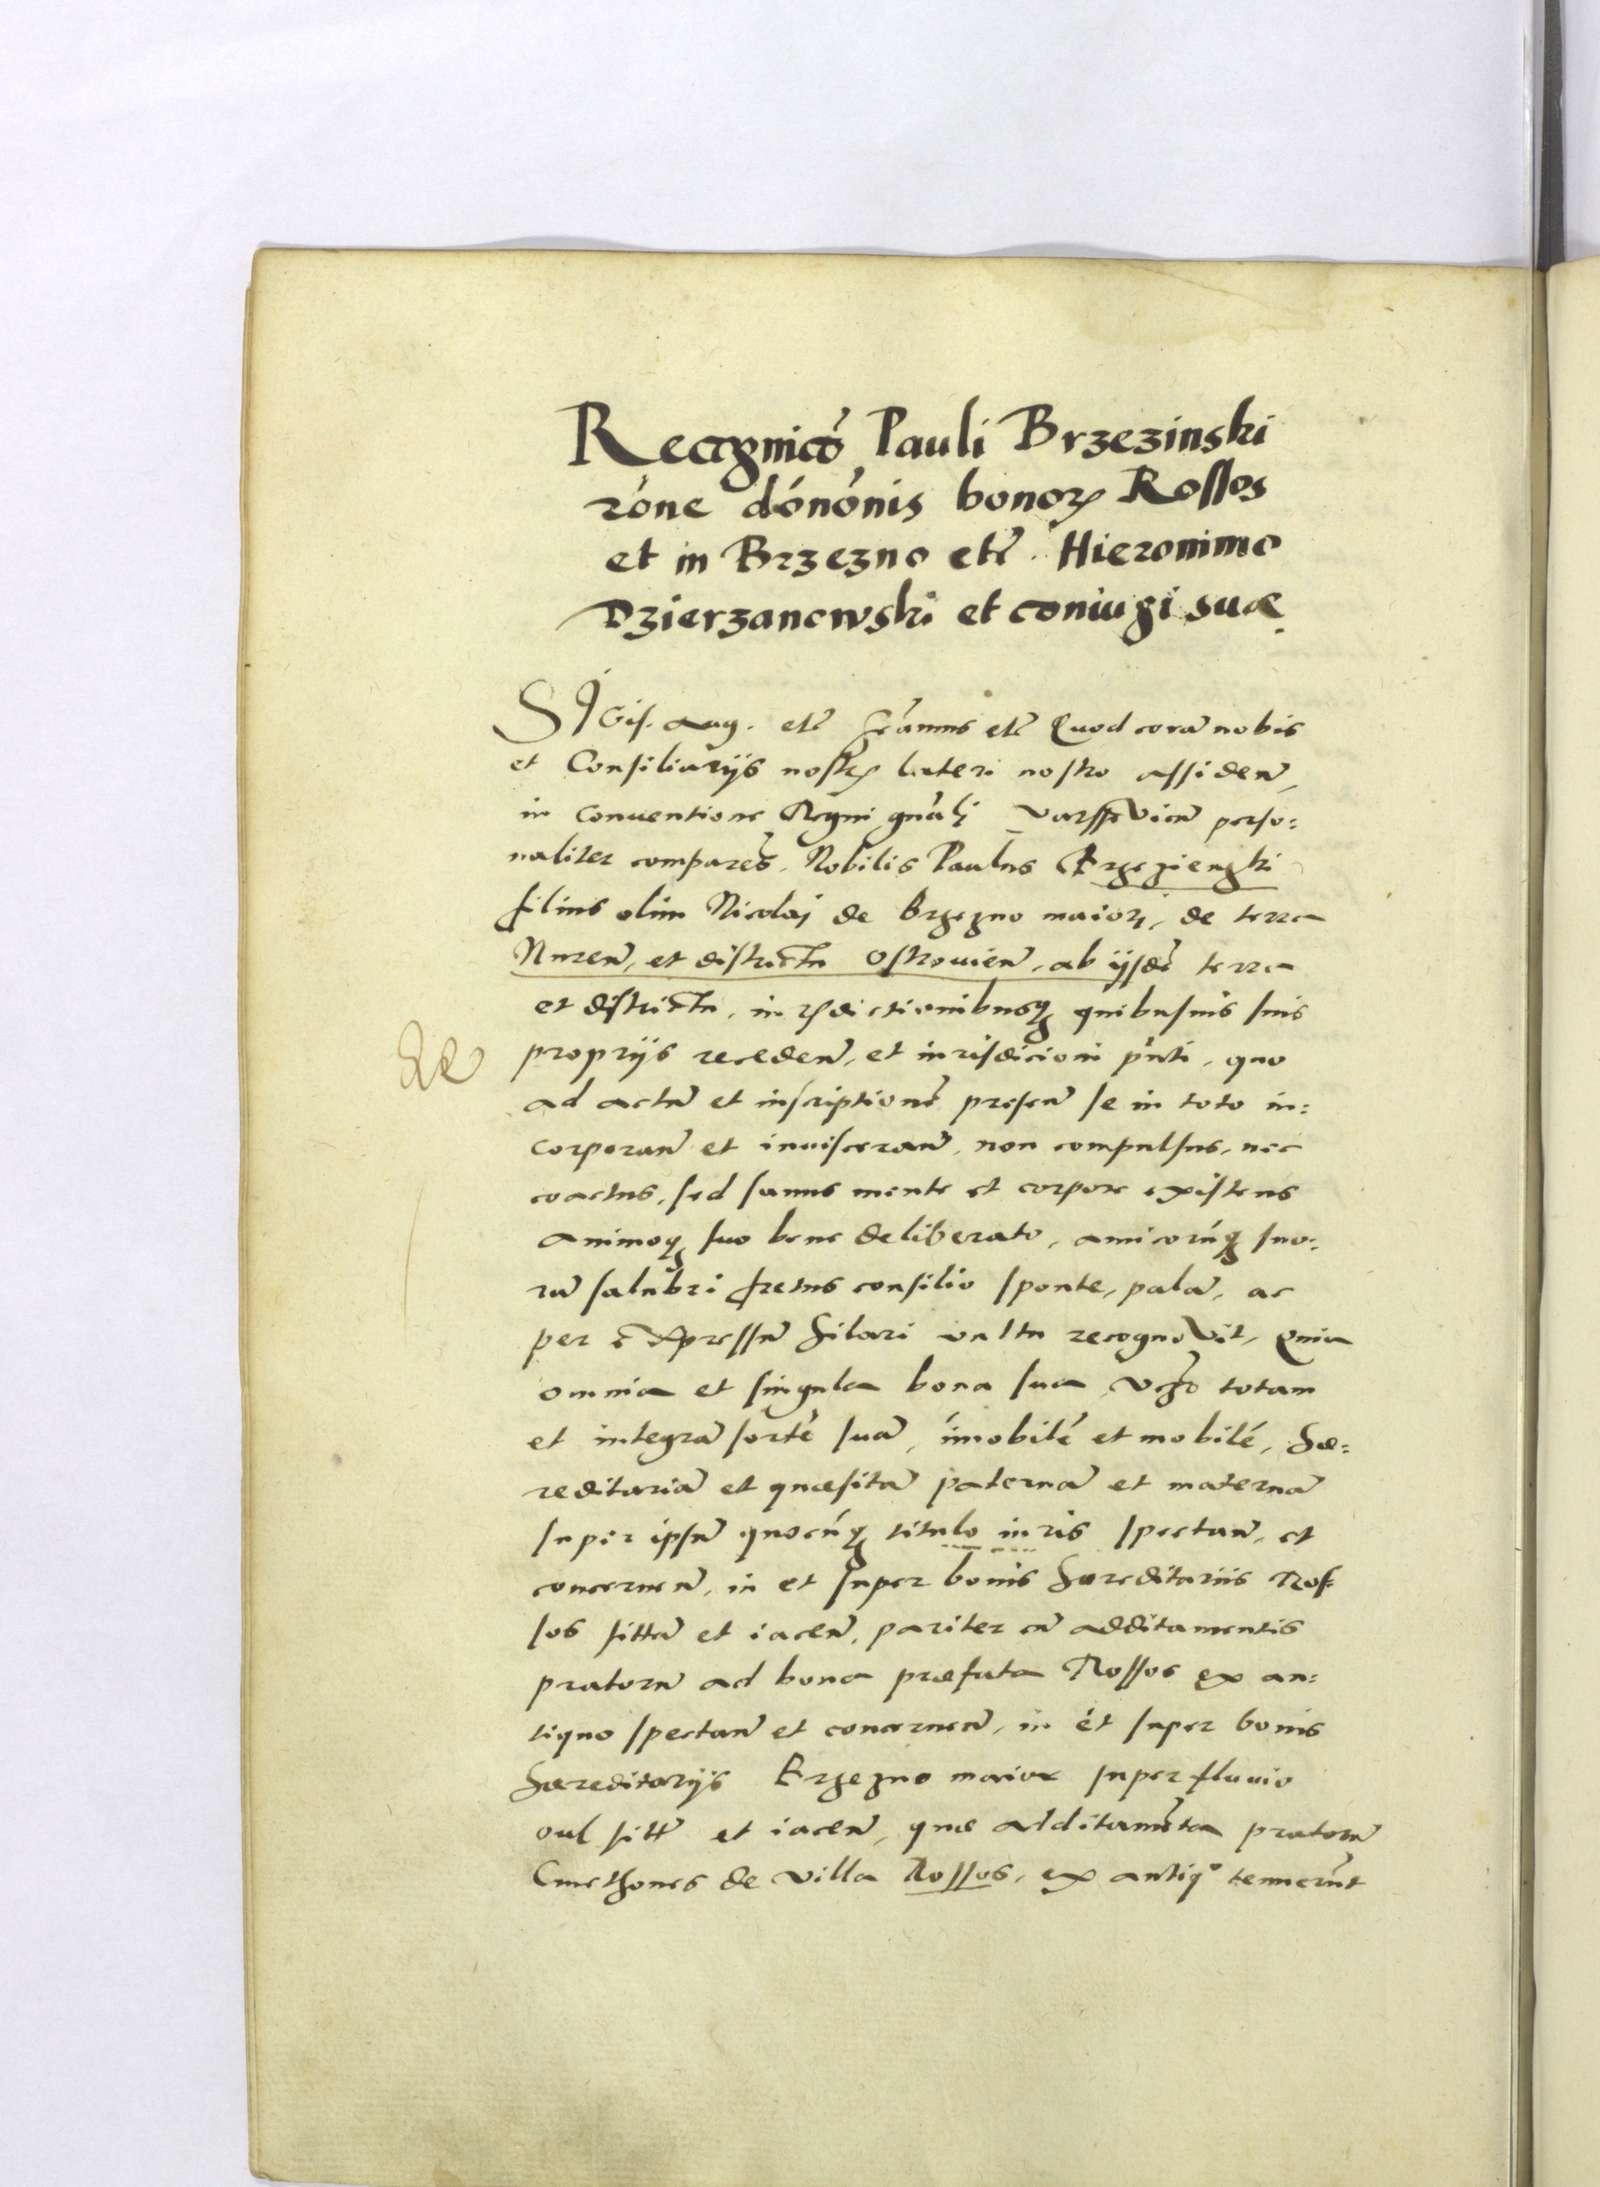 Recognico͂ Pauli Brzezinski
ro͂ne do͂no͂nis bonoꝝ Rossos
et in Brzezno etc͂. Hieronimo
Dzierzanowski et coniugi suæ
SIGis. Aug. etc͂ fca͂mus etc͂ Quod cora͂ nobis
et Consiliarijs nostꝝ lateri nostro assiden͂,
in Conuentione Regni gn͂alj Varssevien͂ perso:
naliter compare͂s. Nobilis Paulus Brzezienski
filius olim Nicolaj de Brzezno maiorj, de terra
Nuren͂, et districtu Ostrouien͂, ab ijsde͂ terra
et districtu, iuꝝdictionibusqꝫ quibusuis suis
proprijs receden͂, et iurisdicioni pn͂ti, quo
ad actu͂ et inscriptione͂ presen͂ se in toto in:
corporan͂ et inuisceran͂, non compulsus, nec
coactus, sed sanus mente et corpore existens
animoqꝫ suo bene deliberato, amicoru͂qꝫ suo:
ru͂ salubri fretus consilio sponte, pala͂, ac
per expressu͂ hilari vultu recognovit, Quia
omnia et singula bona sua, vcz͂ totam
et integra͂ sorte͂ sua͂, i͂mobile͂ et mobile͂, hæ:
reditaria͂ et quæsita͂ paterna͂ et materna͂
super ipsu͂ quocu͂qꝫ titulo iuris spectan͂, et
concernen͂, in et super bonis hæreditariis Ros:
sos sitta͂ et iacen͂, pariter cu͂ additamentis
pratoru͂ ad bona præfata Rossos ex an:
tiquo spectan͂ et concernen͂, in et super bonis
hæreditarijs Brzezno maior super fluvio
sitt͂ et iacen͂, quæ additame͂ta pratoru͂
Cmethones de villa Rossos, ex antiqº tenueru͂t